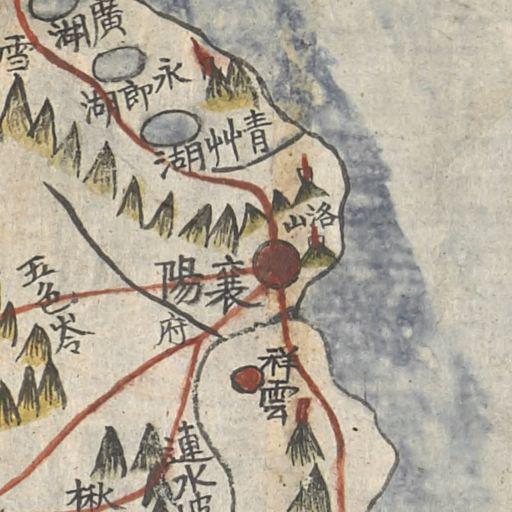 廣湖
永郎湖
雪
青艸湖
洛山
襄陽
府
五色岺
祥雲
連水坡
楸